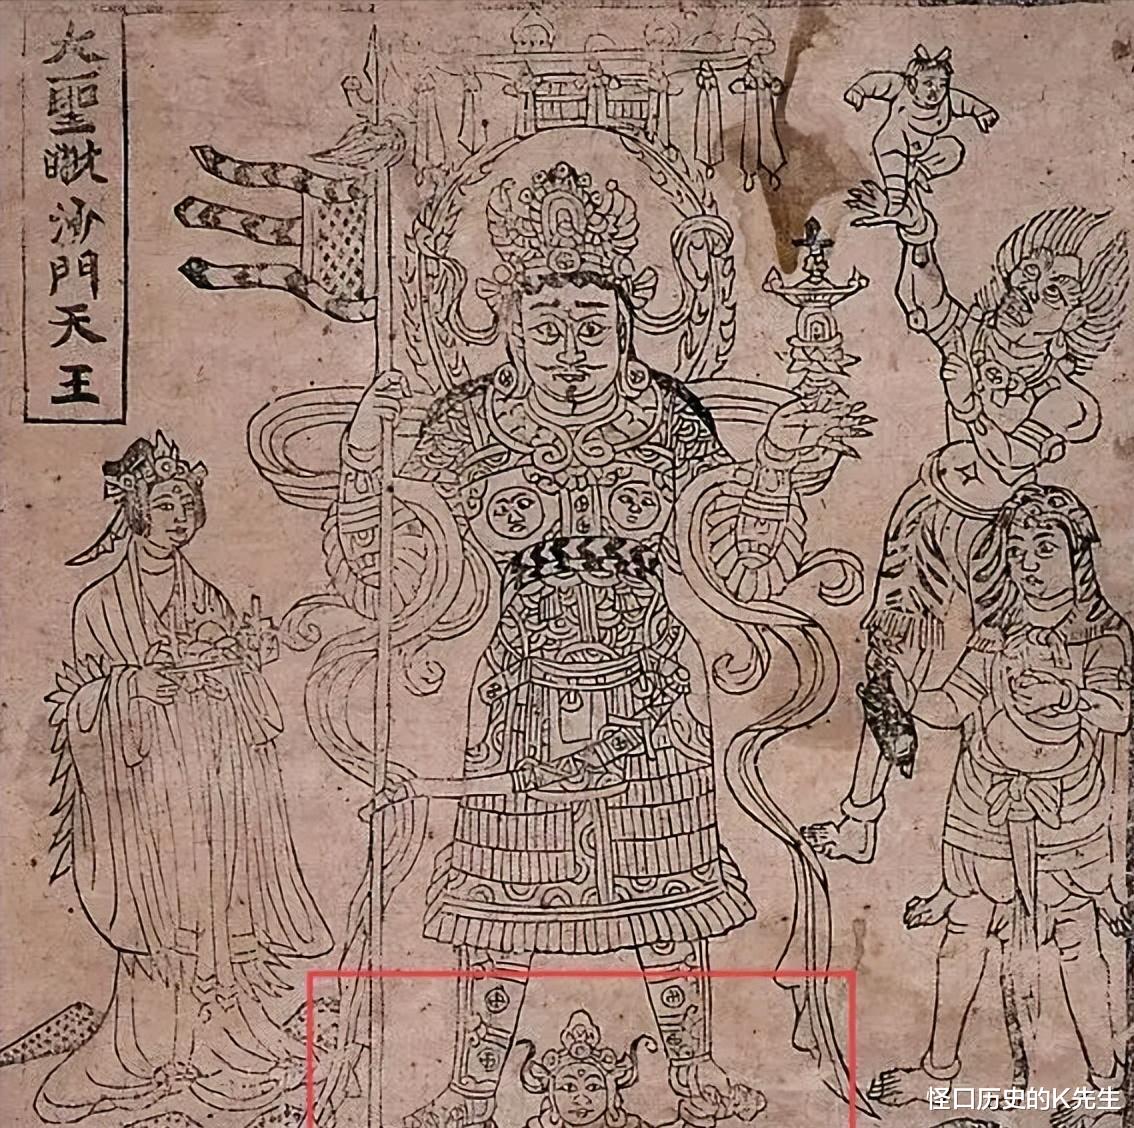 大聖毗沙門天王
怪口历史的K先生